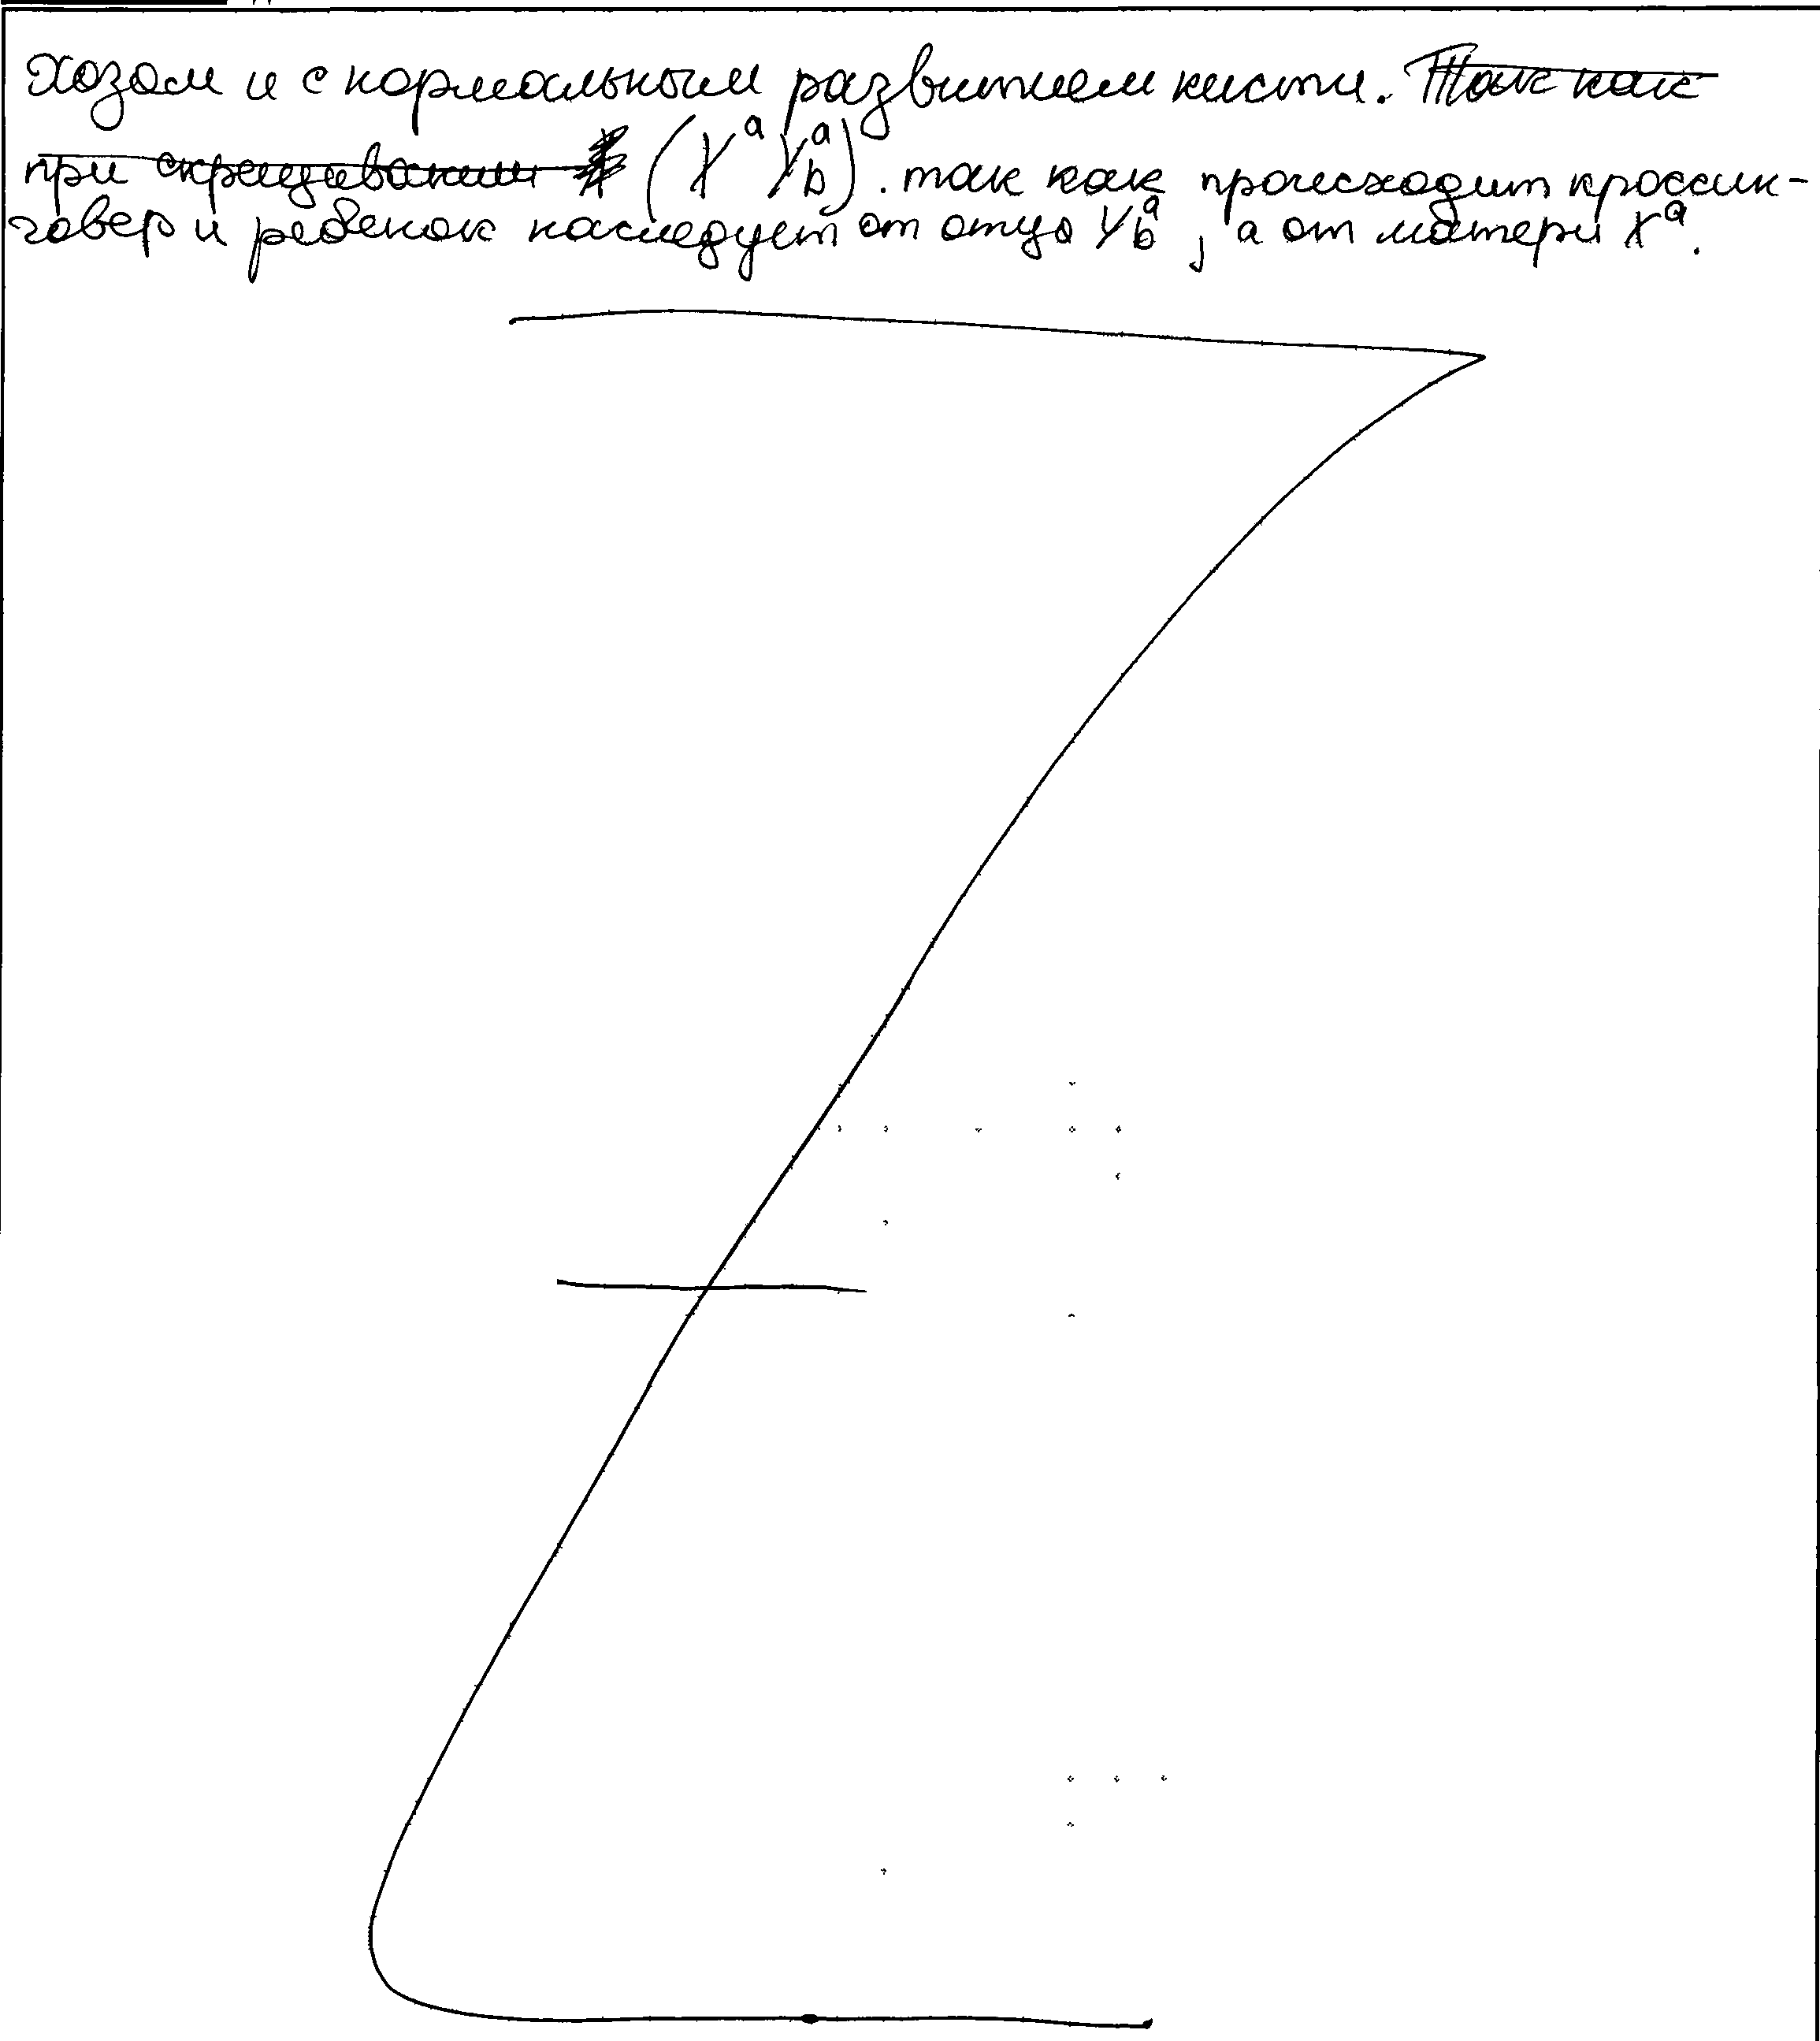 хозом и с нормальным развитием кисти. Так как
при скрещивании (X^a Y_b^a). так как происходит кроссин-
говер и ребенок наследует от отца Y_b^a, а от матери X^a.